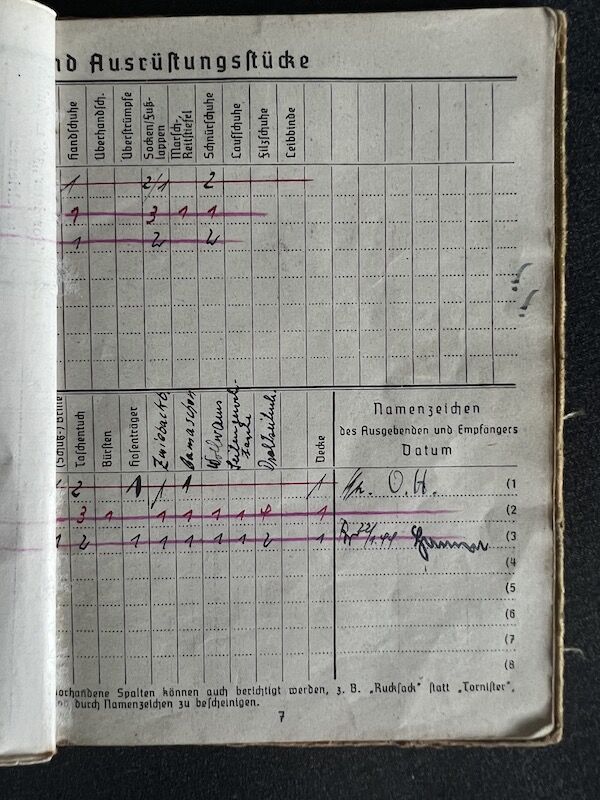 nd Ausrüſtungsſtücke
Handſchuhe
Überhandſch.
Überſtrümpfe
Socken/Fuß-
lappen
Marſch-
Reitſtiefel
Schnürſchuhe
Laufſchuhe
Filzſchuhe
Leibbinde
1 2/1 2
1 3 1 1
1 2 2
(Schutz-) Brille
Taſchentuch
Bürſten
Hoſenträger
Zwiebackb.
Gamaſchen
Decke
Namenzeichen
des Ausgebenden und Empfängers
Datum
2 1 1 1 1 O.H. (1
3 1 1 1 1 1 4 1 (2
1 2 1 1 1 1 1 2 1 22/1.44 (3
(4
(5
(6
(7
(8
vorhandene Spalten können auch berichtigt werden, z. B. „Ruckſack“ ſtatt „Torniſter“,
durch Namenzeichen zu beſcheinigen.
7